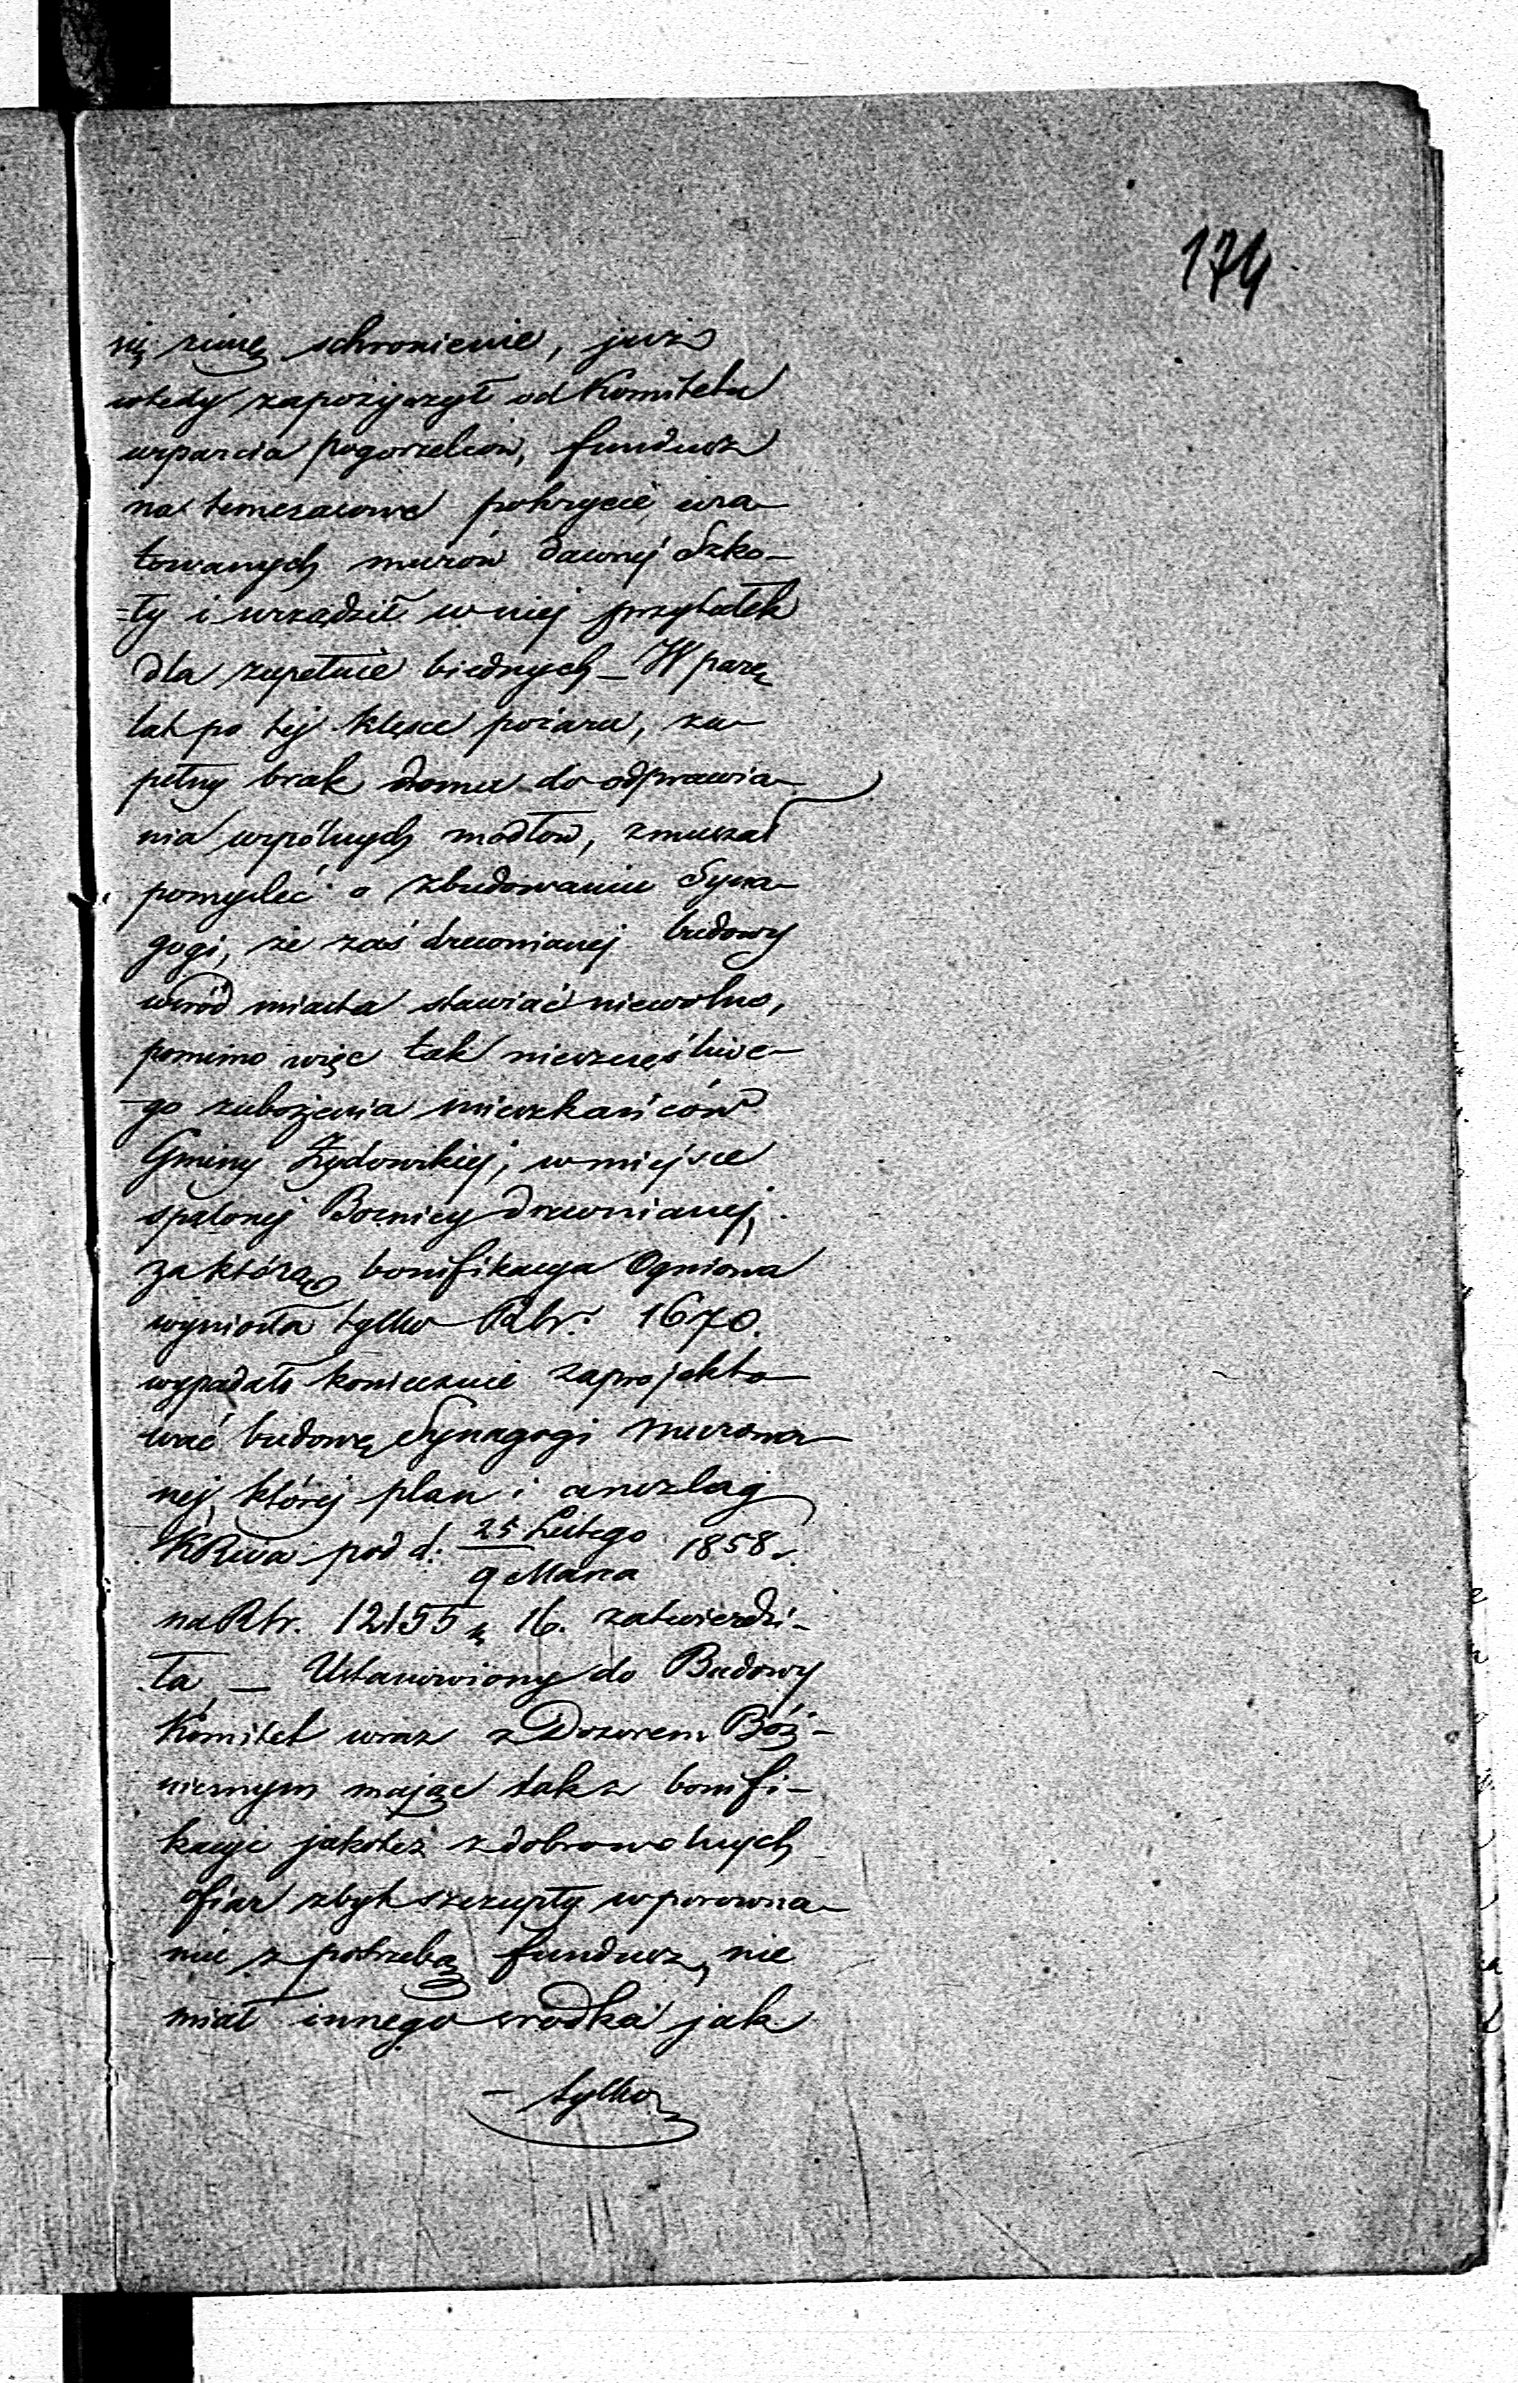 174
się zimę schronienie, już
wtedy zapożyczył od Komitetu
wsparcia pogorzelców, fundusz
na tymczasowe pokrycie ura-
towanych murów dawnej Szko-
=ły i urządził w niej przytułek
dla zupełnie biednych – W parę
lat po tej klęsce pożaru, zu-
pełny brak domu do odprawia-
nia wspólnych modłów, zmuszał
pomyśleć o zbudowaniu Syna-
gogi, że zaś drewnianej budowy
wśród miasta stawiać niewolno,
pomimo więc tak nieszczęśliwe-
go zubożenia mieszkańców
Gminy Żydowskiej, w miejsce
spalonej Bożnicy drewnianej,
za którą bonifikacya Ogniowa
wyniosła tylko Rbr. 1670.
wypadało koniecznie zaprojekto-
wać budowę Synagogi murowa-
nej, której plan i anszlag
KRwa pod d. 25 Lutego / 9 Marca 1858 r.
na Rbr. 12155 k 16. zatwierdzi-
ła – Ustanowiony do Budowy
Komitet wraz z Dozorem Bóż-
nicznym mając tak z bonifi-
kacyi jakoteż z dobrowolnych
ofiar zbyt szczupły w porowna-
niu z potrzebą fundusz, nie
miał innego srodka jak
– tylko